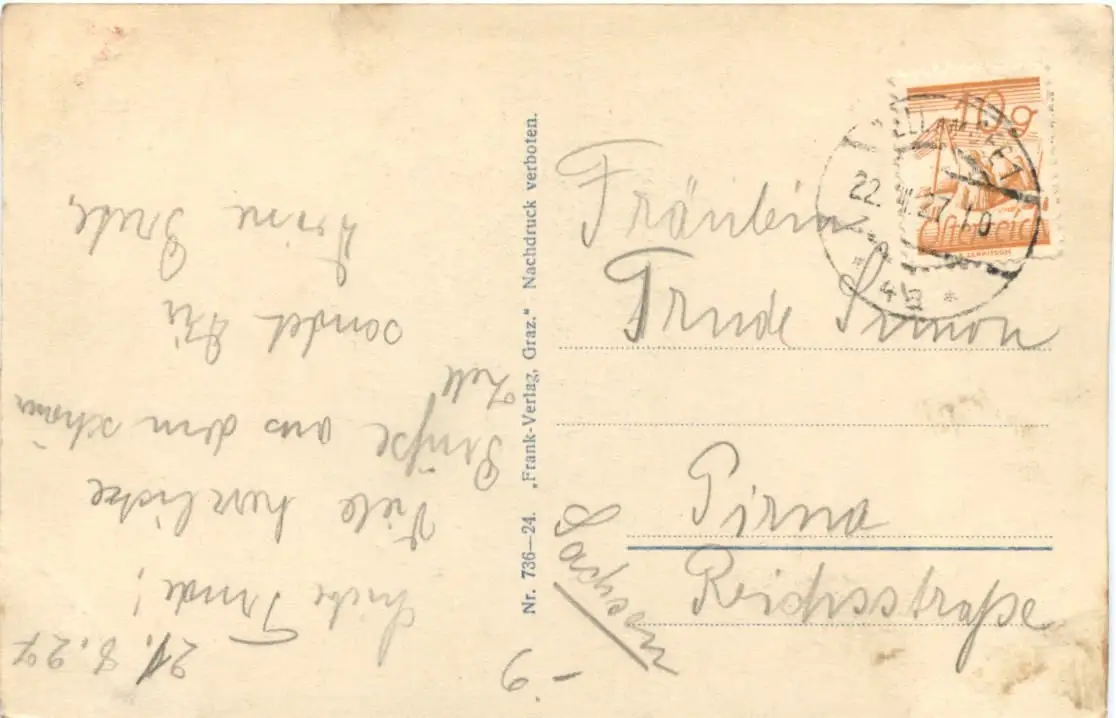 21. 8. 27
Liebe Trude!
Viele herzliche
Grüße aus dem schönen
Zell
sendet Dir
Deine Grete.
Nr. 736—24. „Frank-Verlag, Graz.“ Nachdruck verboten.
10 g
Österreich
22. 27
Fräulein
Trude Simon
Pirna
Sachsen
Reichsstraße